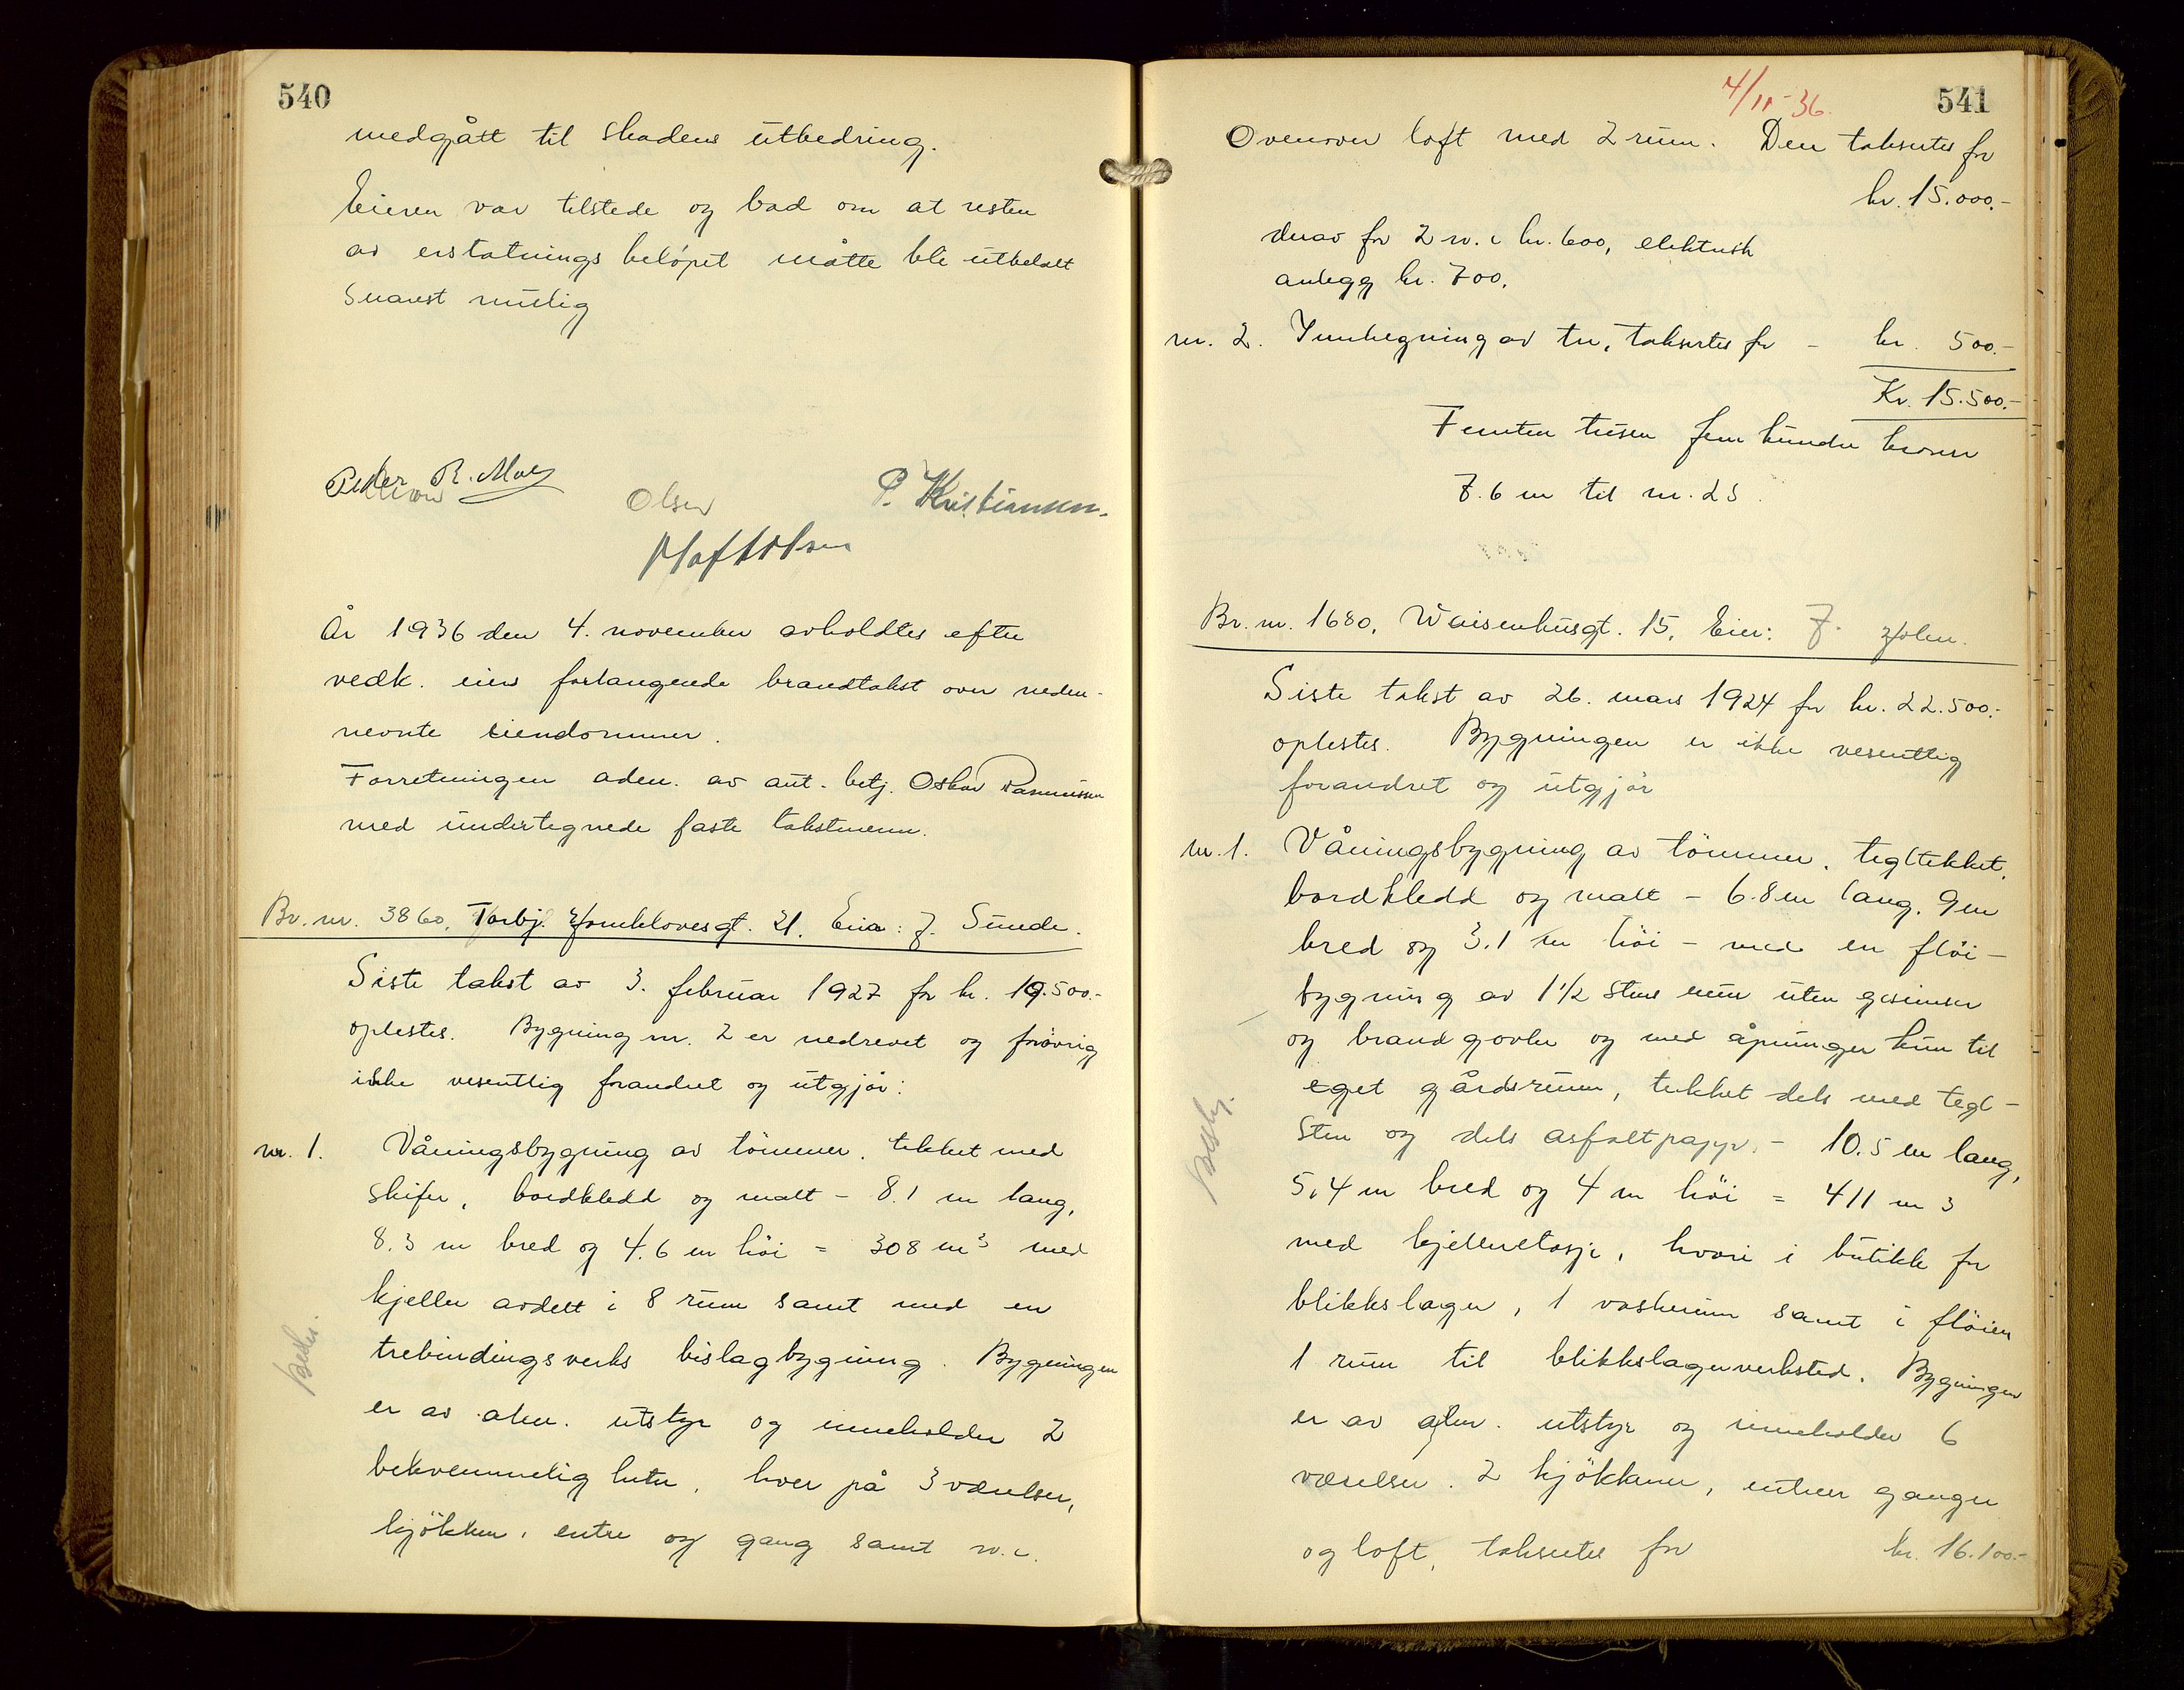 540
medgått til skadens utbedring.
Eieren var tilstede og bad om at resten
av erstatningsbeløpet måtte bli utbetalt
snarest mulig
Peder R.
Olsen
P. Kristiansen.
År 1936 den 4. november avholdtes efter
vedk. eiers forlangende brandtakst over neden-
nevnte eiendommer.
Forretningen adm. av aut. betj. Oskar Rasmussen
med undertegnede faste takstmenn.
Br. nr. 3860, Torbj. Hornklovesgt. 21. Eier: J. Sunde.
Siste takst av 3. februar 1927 for kr. 19.500.-
oplestes. Bygning nr. 2 er nedrevet og forøvrig
ikke vesentlig forandret og utgjør:
nr. 1. Våningsbygning av tømmer, tekket med
skifer, bordkledd og malt - 8.1 m lang,
8.3 m bred og 4.6 m høi = 308 m3 med
kjeller avdelt i 8 rum samt med en
trebindingsverks bislagbygning. Bygningen
er av alm. utstyr og inneholder 2
bekvemmeligheter, hver på 3 værelser,
kjøkken, entre og gang samt w.c.
4/11-36.
541
Ovenover loft med 2 rum. Den takseres for
kr. 15.000.-
derav for 2 w.c kr. 600, elektrisk
anlegg kr. 700.
nr. 2. Innhegning av tre, takseres for - kr. 500.-
Kr. 15.500.-
Femten tusen fem hundre kroner
7.6 m til nr. 23
Br. nr. 1680, Waisenhusgt. 15, Eier: J. Holm.
Siste takst av 26. mars 1924 for kr. 22.500.-
oplestes. Bygningen er ikke vesentlig
forandret og utgjør
nr. 1. Våningsbygning av tømmer, tegltekket,
bordkledd og malt - 6.8 m lang, 9 m
bred og 3.1 m høi - med en fløi-
bygning av 1 1/2 stens mur uten gesimser
og brandgavler og med åpninger kun til
eget gårdsrum, tekket dels med tegl-
sten og dels asfaltpapp. - 10.5 m lang,
5,4 m bred og 4 m høi = 411 m 3
med kjelleretasje, hvori i butikk for
blikkslager, 1 vaskerum samt i fløien
1 rum til blikkslagerverksted. Bygningen
er av alm. utstyr og inneholder 6
værelser. 2 kjøkkener, entreer ganger
og loft, takseres for kr. 16.100.-